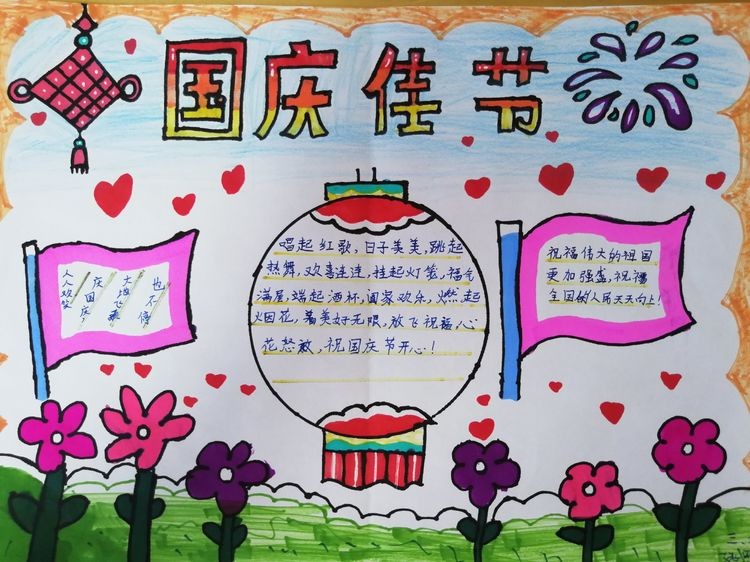 国庆佳节
人人欢笑
庆国庆！
大
也不停
唱起红歌，日子美美，跳起
热舞，欢喜连连，挂起灯笼，福气
满屋，端起酒杯，阖家欢乐，燃起
烟花，美好无限，放飞祝福，心
花怒放，祝国庆节开心！
祝福伟大的祖国
更加强盛，祝福
全国的人民天天向上！